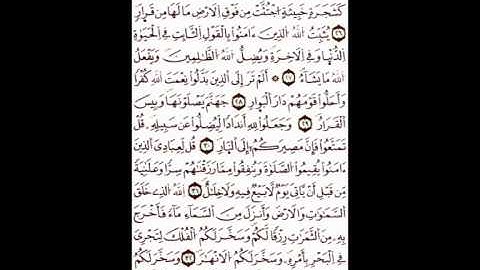 كَشَجَرَةٍ خَبِيثَةٍ اِجْتُثَّتْ مِن فَوْقِ اِلَارْضِ مَا لَهَا مِن قَرَارٖ
٢٦ يُثَبِّتُ اُللَّهُ اُلذِينَ ءَامَنُواْ بِالْقَوْلِ اِلثَّابِتِ فِے اِلْحَيَوٰةِ
اِلدُّنْيَا وَفِے اِلَاخِرَةِ وَيُضِلُّ اُللَّهُ اُلظَّٰلِمِينَ وَيَفْعَلُ
اُللَّهُ مَا يَشَآءُ ٢٧ ۞ أَلَمْ تَرَ إِلَى اَلذِينَ بَدَّلُواْ نِعْمَتَ اَللَّهِ كُفْراٗ
وَأَحَلُّواْ قَوْمَهُمْ دَارَ اَلْبَوَارِ ٢٨ جَهَنَّمَ يَصْلَوْنَهَا وَبِيسَ
اَلْقَرَارُ ٢٩ وَجَعَلُواْ لِلهِ أَندَاداٗ لِّيُضِلُّواْ عَن سَبِيلِهِۦ قُلْ
تَمَتَّعُواْ فَإِنَّ مَصِيرَكُمُۥٓ إِلَى اَلنّارِ ٣٠ قُل لِّعِبَادِيَ اَلذِينَ
ءَامَنُواْ يُقِيمُواْ اُلصَّلَوٰةَ وَيُنفِقُواْ مِمَّا رَزَقْنَٰهُمْ سِرّاٗ وَعَلَٰنِيَةٗ
مِّن قَبْلِ أَنْ يَّاتِيَ يَوْمٞ لَّا بَيْعٞ فِيهِ وَلَا خِلَٰلٌ ٣١ اِللَّهُ اُلذِے خَلَقَ
اَلسَّمَٰوَٰتِ وَالَارْضَ وَأَنزَلَ مِنَ اَلسَّمَآءِ مَآءٗ فَأَخْرَجَ
بِهِۦ مِنَ اَلثَّمَرَٰتِ رِزْقاٗ لَّكُمْ وَسَخَّرَ لَكُمُ اُلْفُلْكَ لِتَجْرِيَ
فِے اِلْبَحْرِ بِأَمْرِهِۦ وَسَخَّرَ لَكُمُ اُلَانْهَٰرَ ٣٢ وَسَخَّرَ لَكُمُ